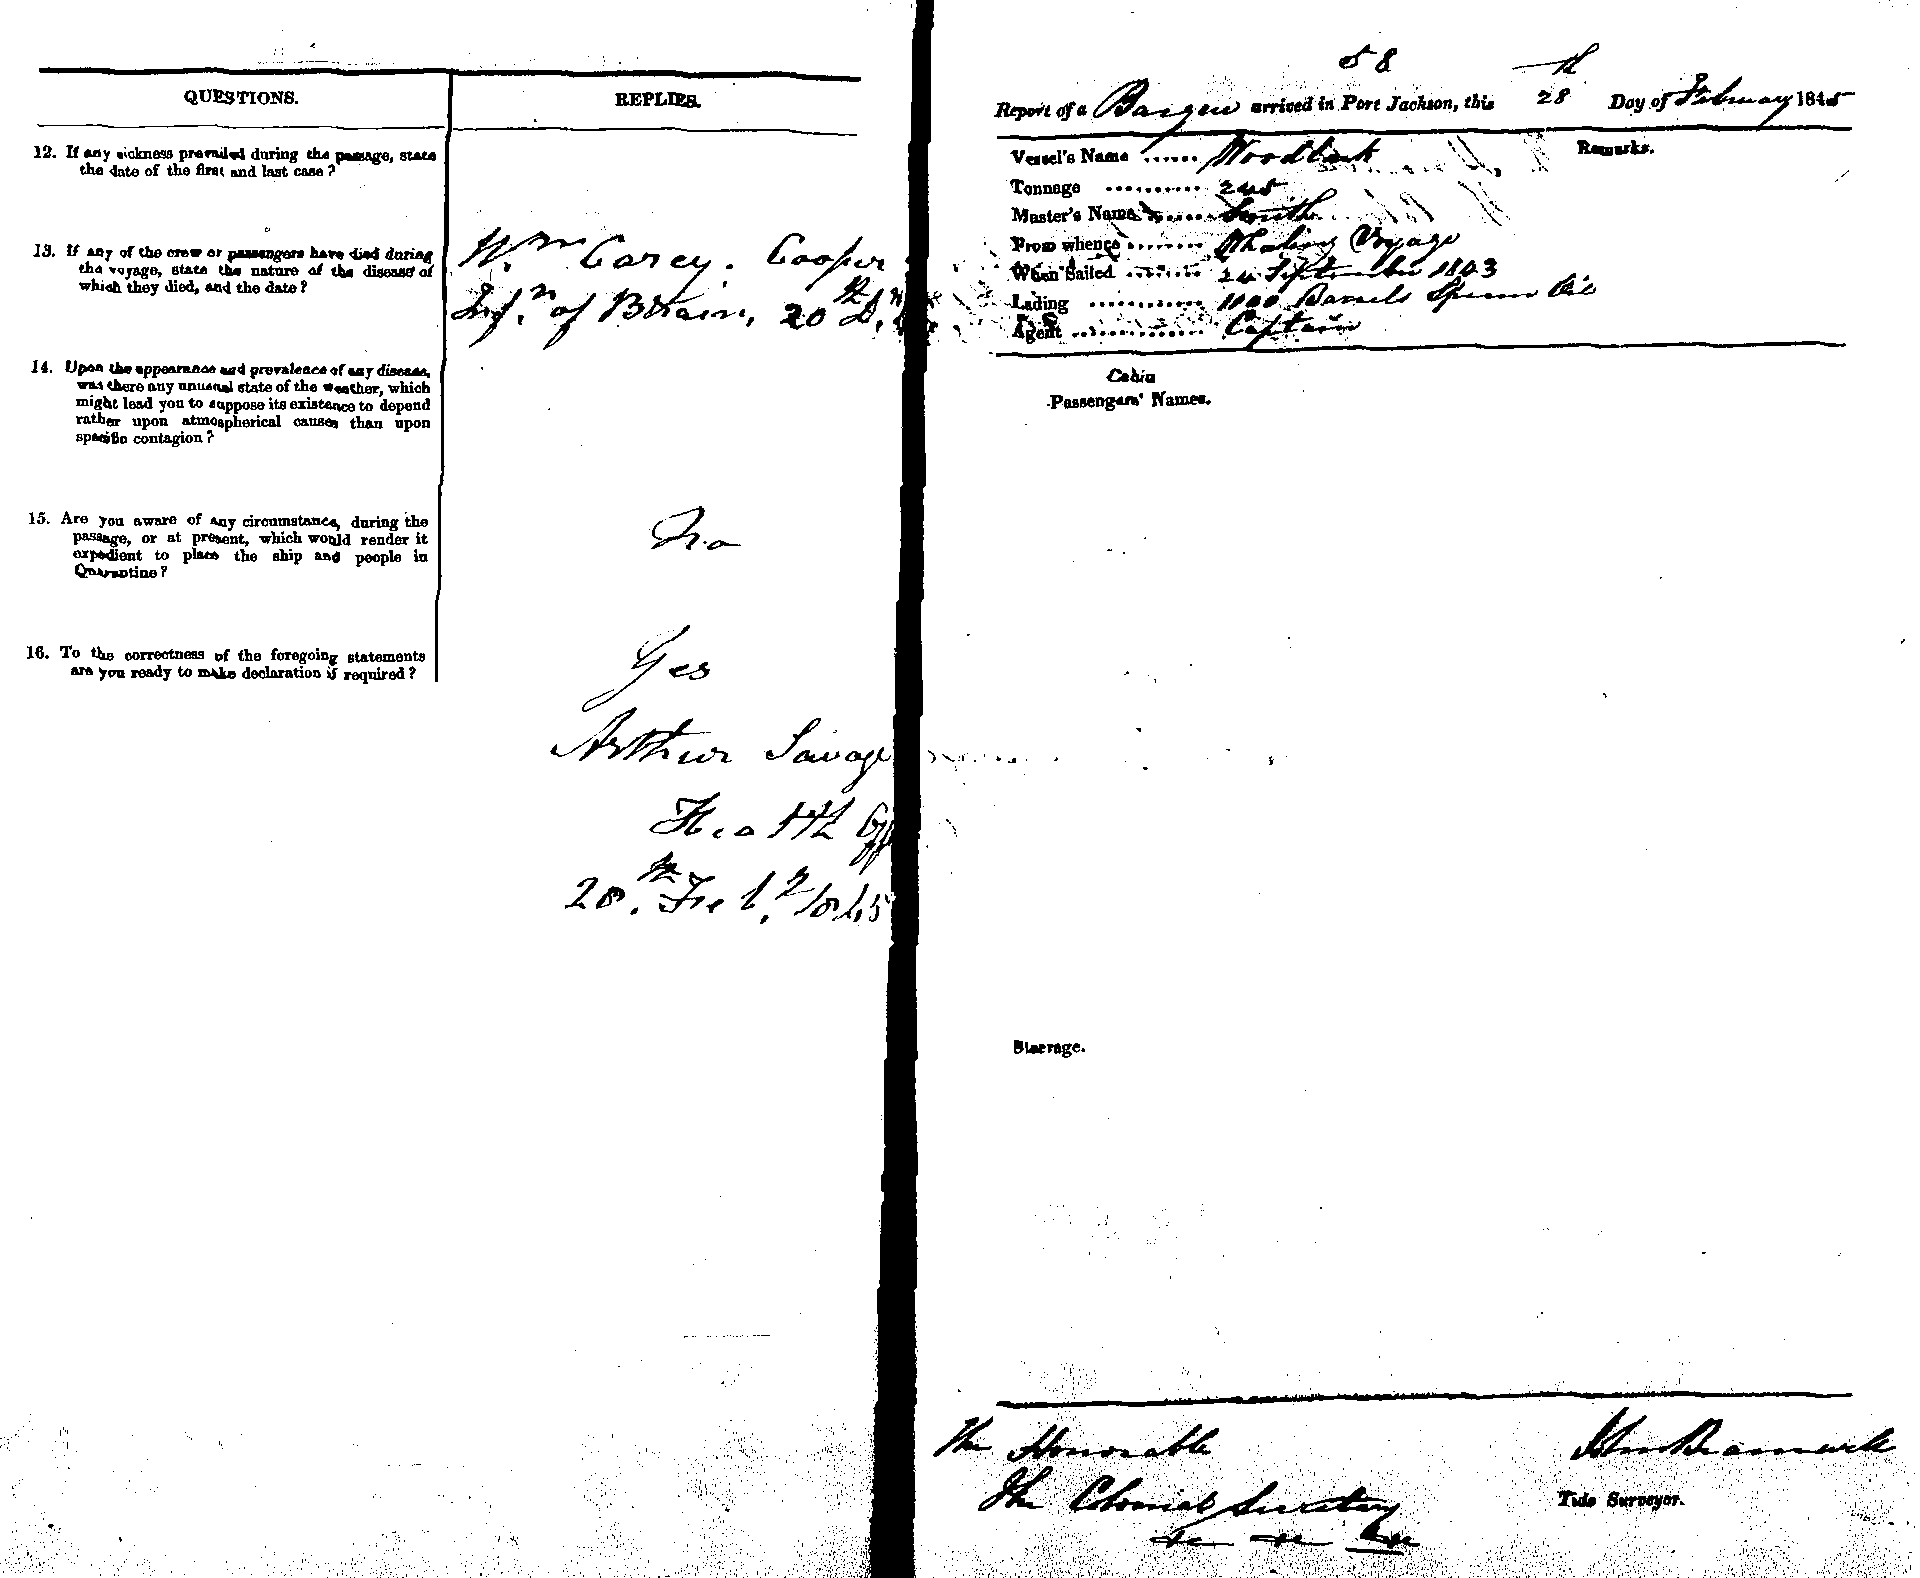 QUESTIONS.
REPLIES.
12. If any sickness prevailed during the passage, state
the date of the first and last case?
13. If any of the crew or passengers have died during
the voyage, state the nature of the disease of
which they died, and the date?
Wm Carey. Cooper
Infn. of Brain, 20th
14. Upon the appearance and prevalence of any disease,
was there any unusual state of the weather, which
might lead you to suppose its existence to depend
rather upon atmospherical causes than upon
specific contagion?
15. Are you aware of any circumstance, during the
passage, or at present, which would render it
expedient to place the ship and people in
Quarantine?
No
16. To the correctness of the foregoing statements
are you ready to make declaration if required?
Yes
Arthur Savage
Health Off
28th. Feb.y 1845
58
Report of a Barque arrived in Port Jackson, this 28th Day of February 1845
Vessel's Name ...... Woodlark
Remarks.
Tonnage .......... 245
Master's Name ...... Smith
From whence ........ Whaling Voyage
When Sailed ........ 24 September 1843
Lading ............ 1100 Barrels Sperm Oil
Agent .............. Captain
Cabin
Passengers' Names.
Steerage.
The Honorable
The Colonial Secretary
John Bramwell
Tide Surveyor.